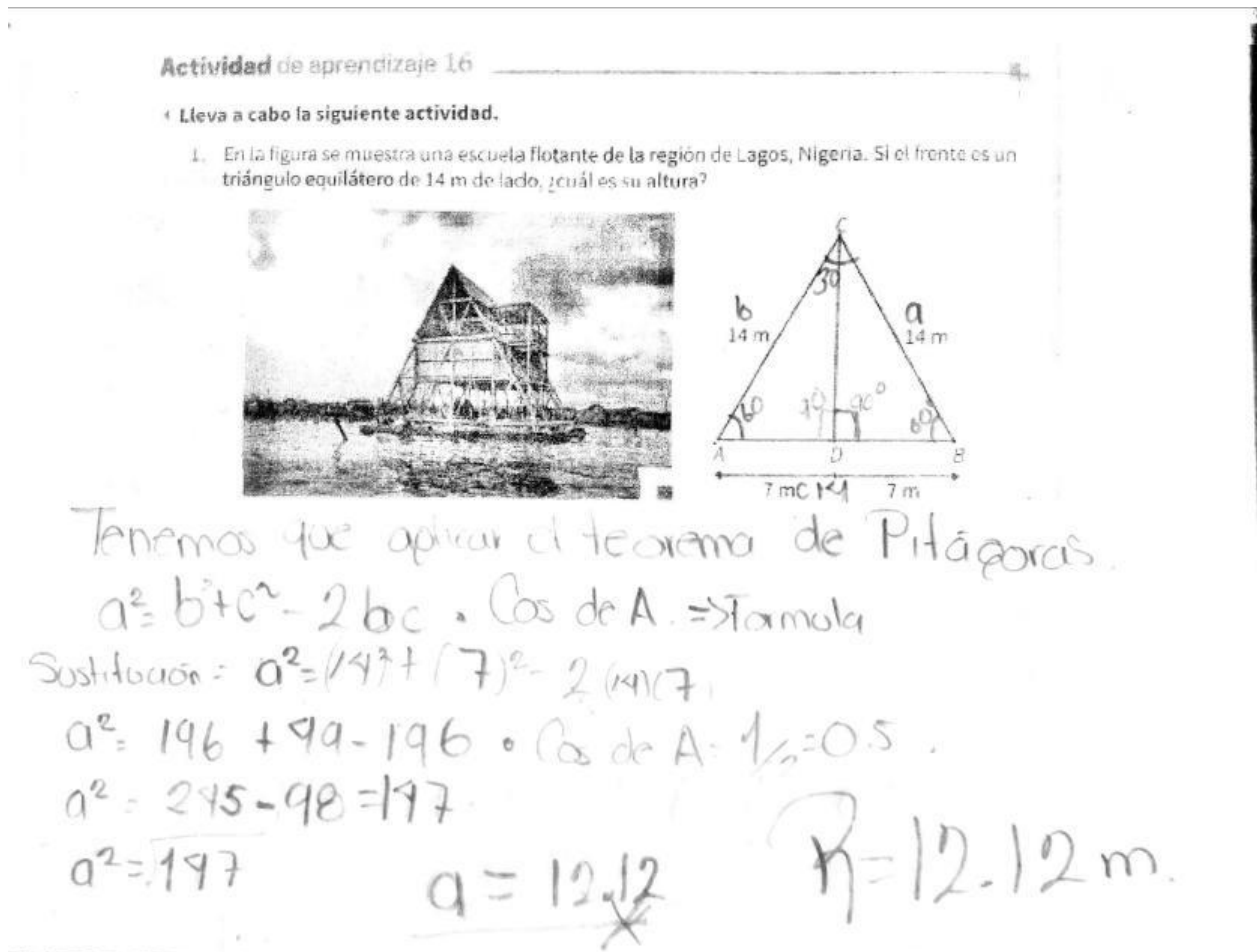 Actividad de aprendizaje 16
Lleva a cabo la siguiente actividad.
1. En la figura se muestra una escuela flotante de la región de Lagos, Nigeria. Si el frente es un
triángulo equilátero de 14 m de lado, ¿cuál es su altura?
C
30
b
a
14 m
14 m
60
90
90°
60
A
D
B
7 m
C
14
7 m
Tenemos que aplicar el teorema de Pitágoras.
a²= b²+c²- 2bc . Cos de A. => Formula
Sustitución = a²=(14)²+(7)²- 2(14)(7
a²= 196 + 49 - 196 • Cos de A = 1/2 = 0.5.
a² = 245-98=147
a²=147
a = 12.12
R=12.12 m.